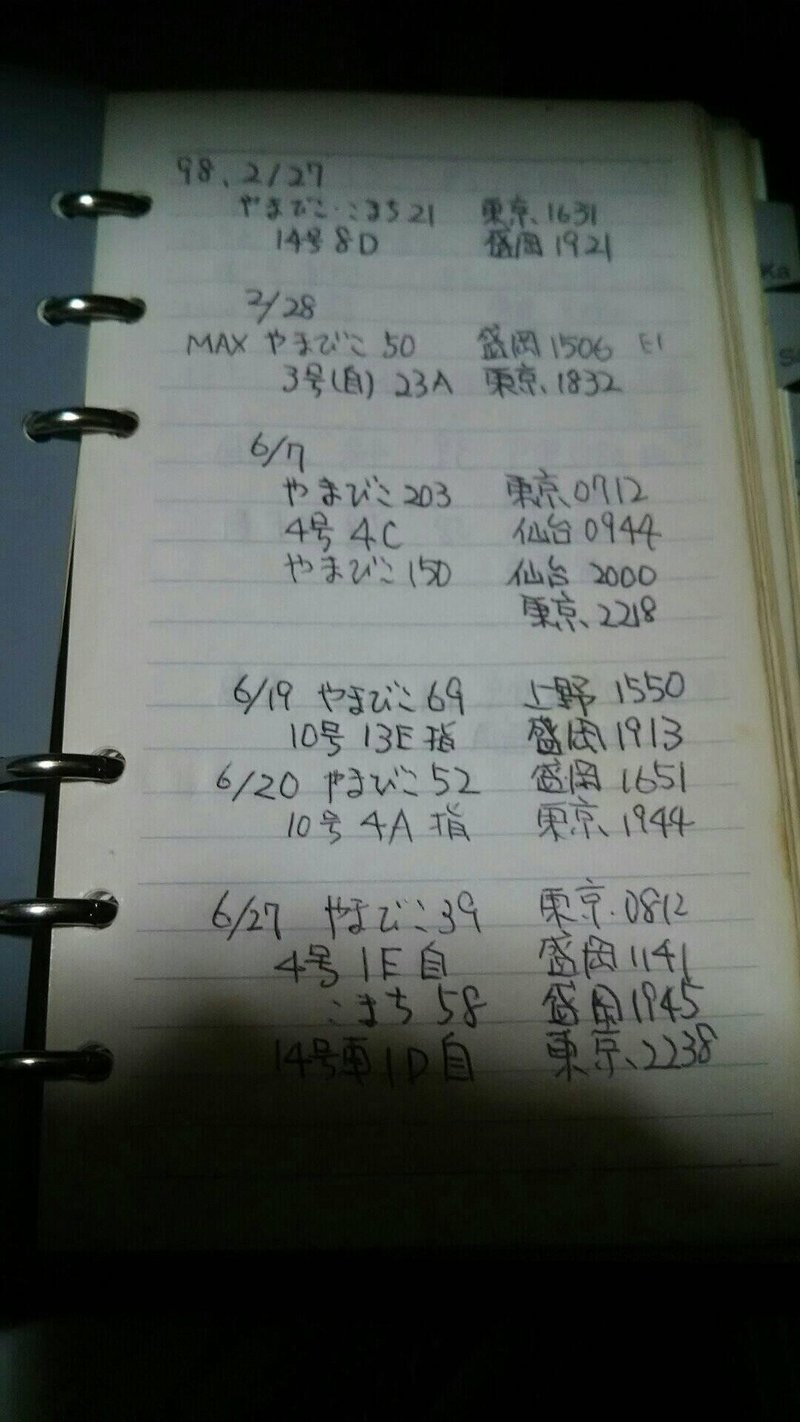 98、2/27
やまびこ・こまち21 東京、1631
14号8D 盛岡1921
2/28
MAX やまびこ 50 盛岡1506 E1
3号(自) 23A 東京、1832
6/7
やまびこ 203 東京、0712
4号 4C 仙台 0944
やまびこ 150 仙台 2000
東京、2218
6/19 やまびこ 69 上野 1550
10号 13E 指 盛岡1913
6/20 やまびこ 52 盛岡 1651
10号 4A 指 東京、1944
6/27 やまびこ39 東京、0812
4号 1E 自 盛岡1141
こまち 58 盛岡1945
14号車 1D 自 東京、2238
Ka